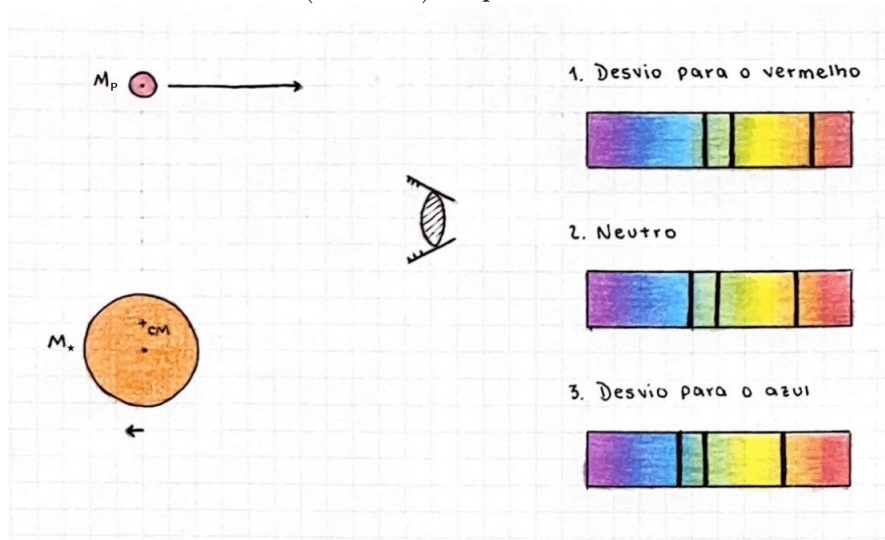 Mₚ
1. Desvio para o vermelho
2. Neutro
CM
M⋆
3. Desvio para o azul